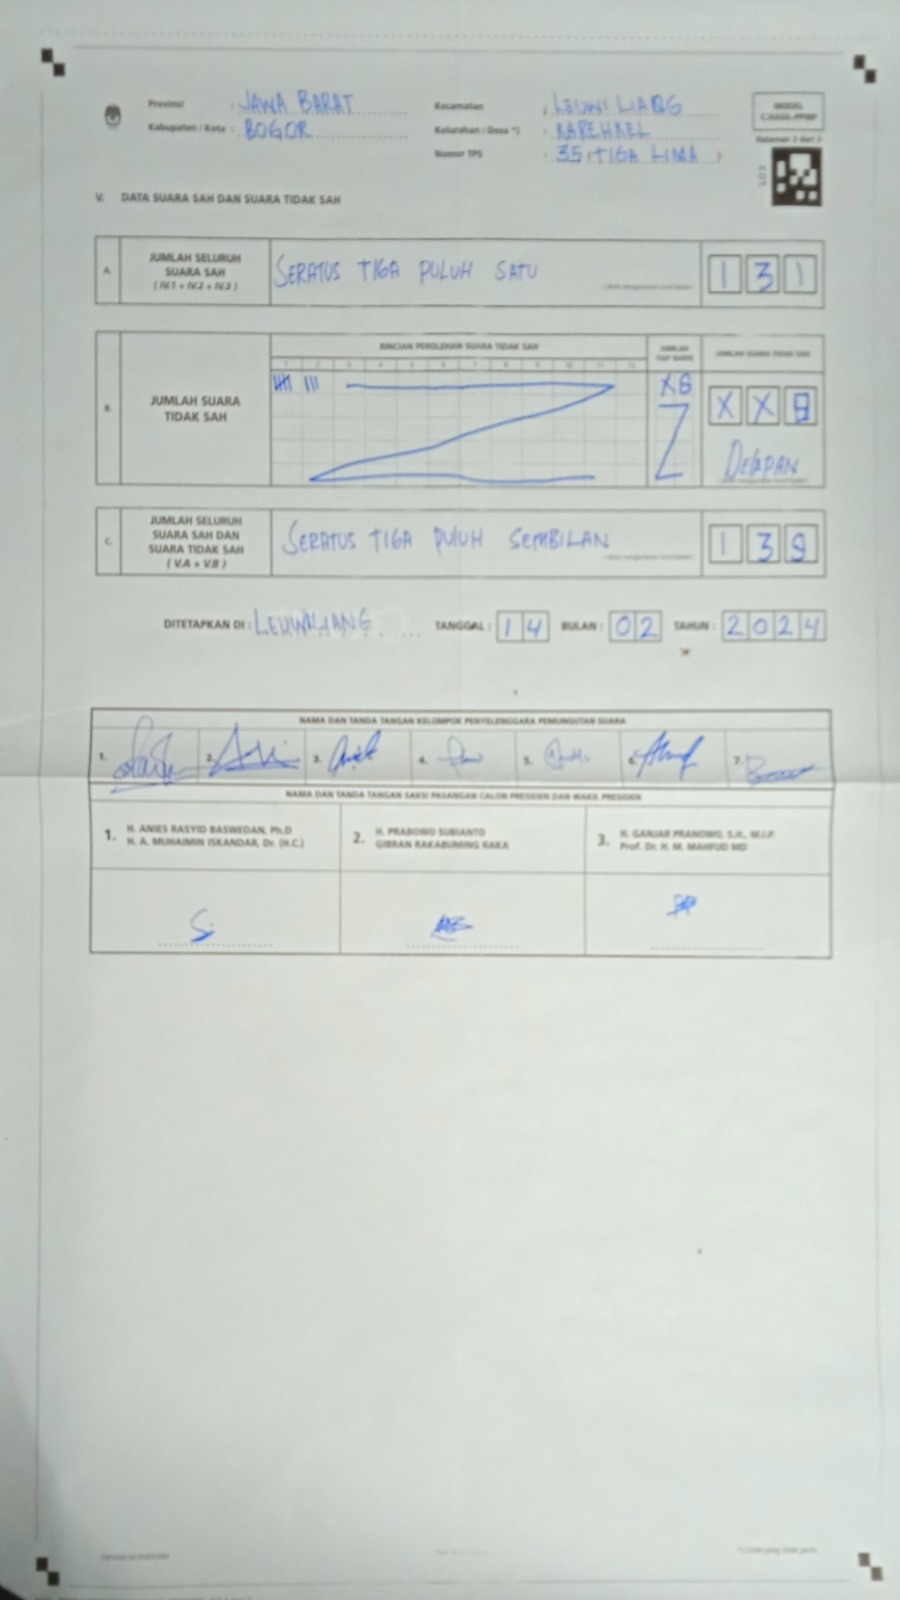 Provinsi : JAWA BARAT
Kabupaten / Kota : BOGOR
Kecamatan : LEUWI LIANG
Kelurahan / Desa *) : KAREHKEL
Nomor TPS : 35 (TIGA LIMA)
MODEL
C.HASIL-PPWP
V. DATA SUARA SAH DAN SUARA TIDAK SAH
A. JUMLAH SELURUH SUARA SAH (IV.1 + IV.2 + IV.3) SERATUS TIGA PULUH SATU 1 3 1
RINCIAN PEROLEHAN SUARA TIDAK SAH
JUMLAH TIAP BARIS
JUMLAH SUARA TIDAK SAH
1 2 3 4 5 6 7 8 9 10 11 12
B. JUMLAH SUARA TIDAK SAH X8 X X 8
DELAPAN
C. JUMLAH SELURUH SUARA SAH DAN SUARA TIDAK SAH (V.A + V.B) SERATUS TIGA PULUH SEMBILAN 1 3 9
DITETAPKAN DI : LEUWILIANG TANGGAL : 1 4 BULAN : 0 2 TAHUN : 2 0 2 4
NAMA DAN TANDA TANGAN KELOMPOK PENYELENGGARA PEMUNGUTAN SUARA
1. 2. 3. 4. 5. 6. 7.
NAMA DAN TANDA TANGAN SAKSI PASANGAN CALON PRESIDEN DAN WAKIL PRESIDEN
1. H. ANIES RASYID BASWEDAN, Ph.D
H. A. MUHAIMIN ISKANDAR, Dr. (H.C.)
2. H. PRABOWO SUBIANTO
GIBRAN RAKABUMING RAKA
3. H. GANJAR PRANOWO, S.H., M.I.P.
Prof. Dr. H. M. MAHFUD MD